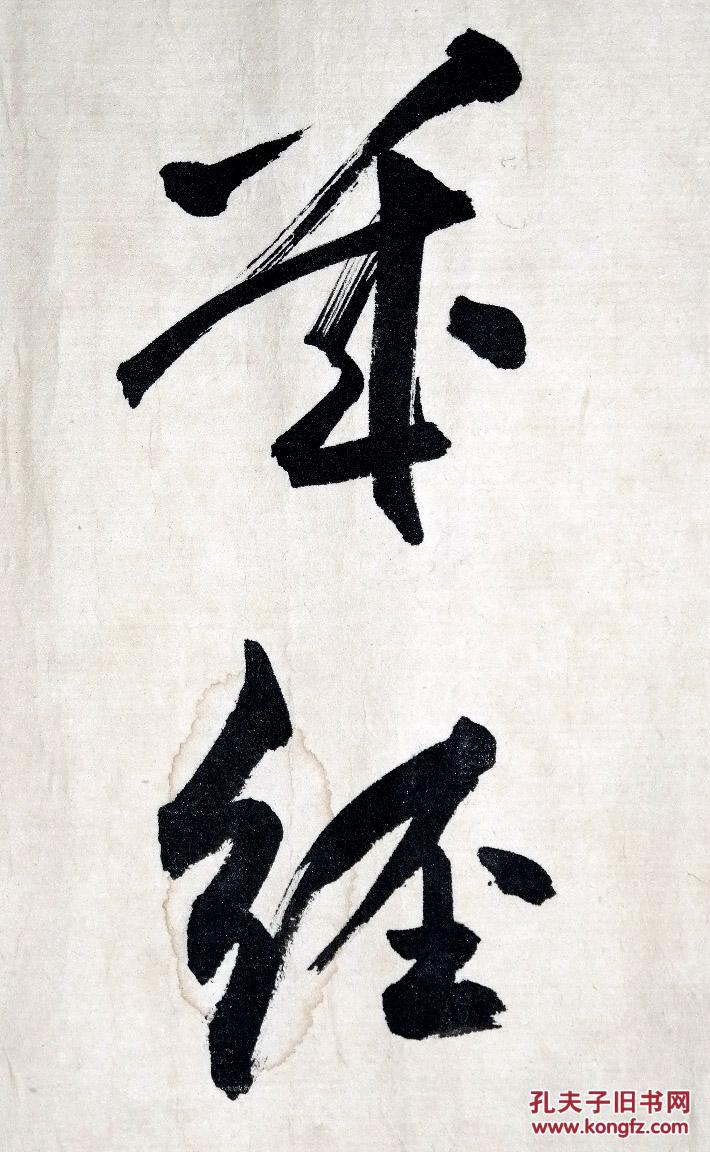 经
孔夫子旧书网
www.kongfz.com